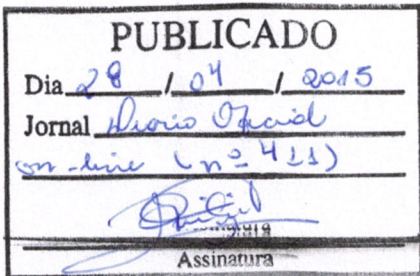 PUBLICADO
Dia 28 / 04 / 2015
Jornal Diario Oficial
on-line (nº 411)
Assinatura